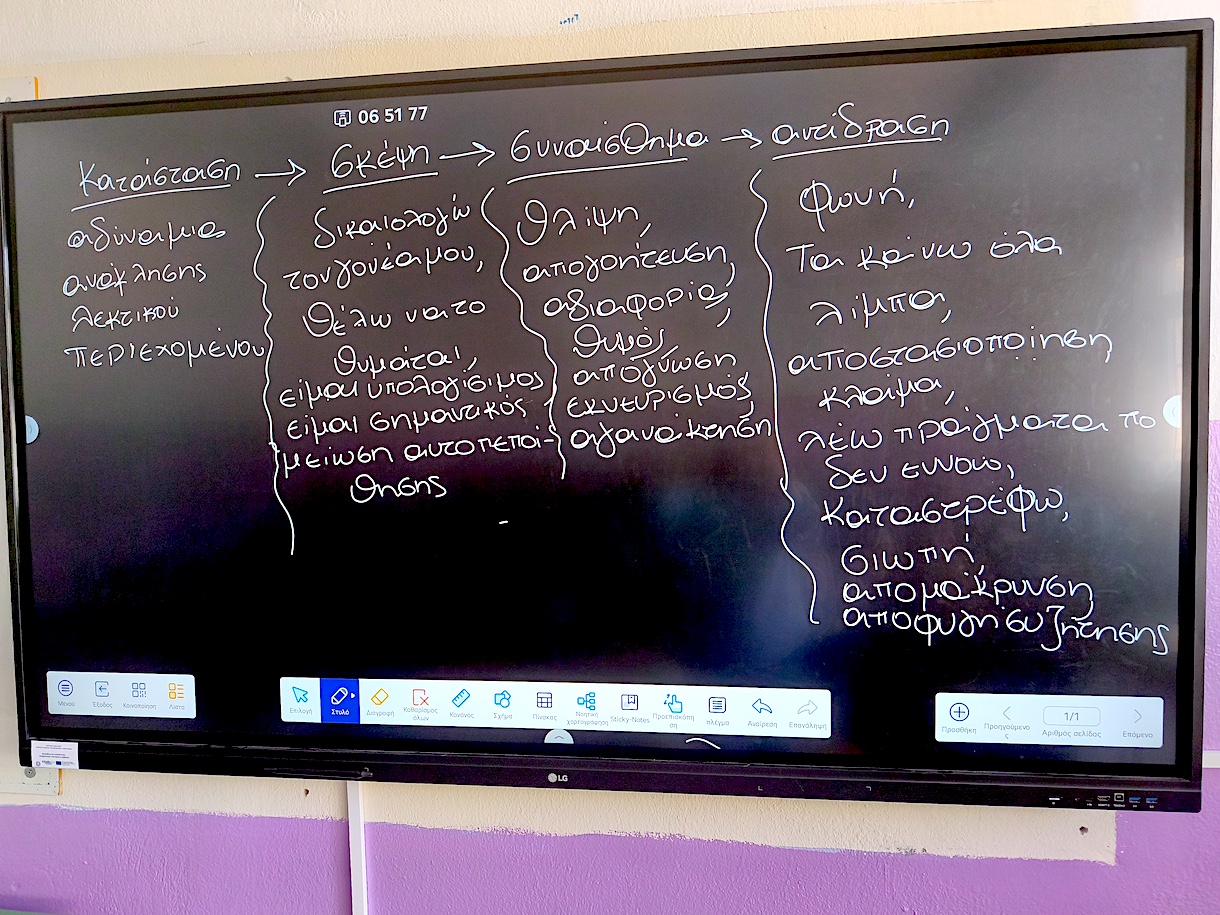 06 51 77
Κατάσταση → σκέψη → συναίσθημα → αντίδραση
αδύναμια
ανάκλησης
λεκτικού
περιεχομένου
δικαιολογώ
τον γονέα μου,
Θέλω να το
θυμάται,
είμαι υπολογίσιμος
είμαι σημαντικός
μείωση αυτοπεποί-
θησης
Θλίψη,
απογοήτευση,
αδιαφορία,
θυμός,
απόγνωση
εκνευρισμός
αγανάκτηση
Φωνή,
Τα κάνω όλα
λίμπα,
αποστασιοποίηση
κλάμα,
λέω πράγματα πο
δεν εννοώ,
Καταστρέφω,
σιωπή,
απομάκρυνση
αποφυγή συζήτησης
Μενού
Έξοδος
Κοινοποίηση
Λίστα
Επιλογή
Στυλό
Διαγραφή
Καθαρισμός όλων
Κανόνας
Σχήμα
Πίνακας
Νοητική χαρτογράφηση
Sticky-Notes
Προεπισκόπηση
πλέγμα
Αναίρεση
Επανάληψη
Προσθήκη
Προηγούμενος
1/1
Αριθμός σελίδας
Επόμενο
LG